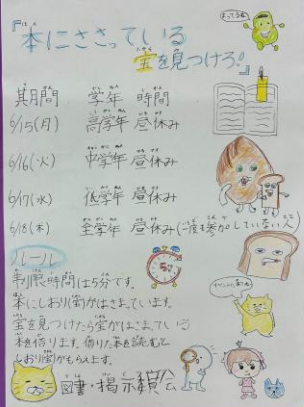 『本にささっている
宝を見つけろ!』
まってるね
期間 学年 時間
6/15(月) 高学年 昼休み
6/16(火) 中学年 昼休み
6/17(水) 低学年 昼休み
6/18(木) 全学年 昼休み(一度も参加していない人)
ルール
制限時間は5分です。
本にしおり(宝)がはさまっています。
宝を見つけたら宝がはさまっている
本を借ります。借りた本を読むと
しおり(宝)がもらえます。
5分
図書・掲示委員会